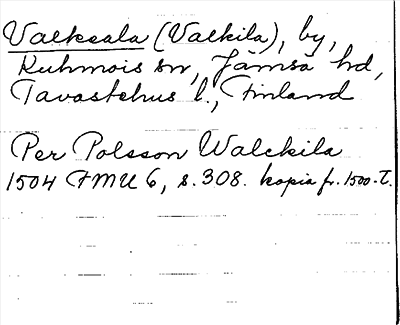 Valkeala (Valkila), by,
Kuhmois sn, Jämsä hd,
Tavastehus l., Finland
Per Polsson Walckila
1504 FMU 6, s. 308. kopia fr. 1500-t.